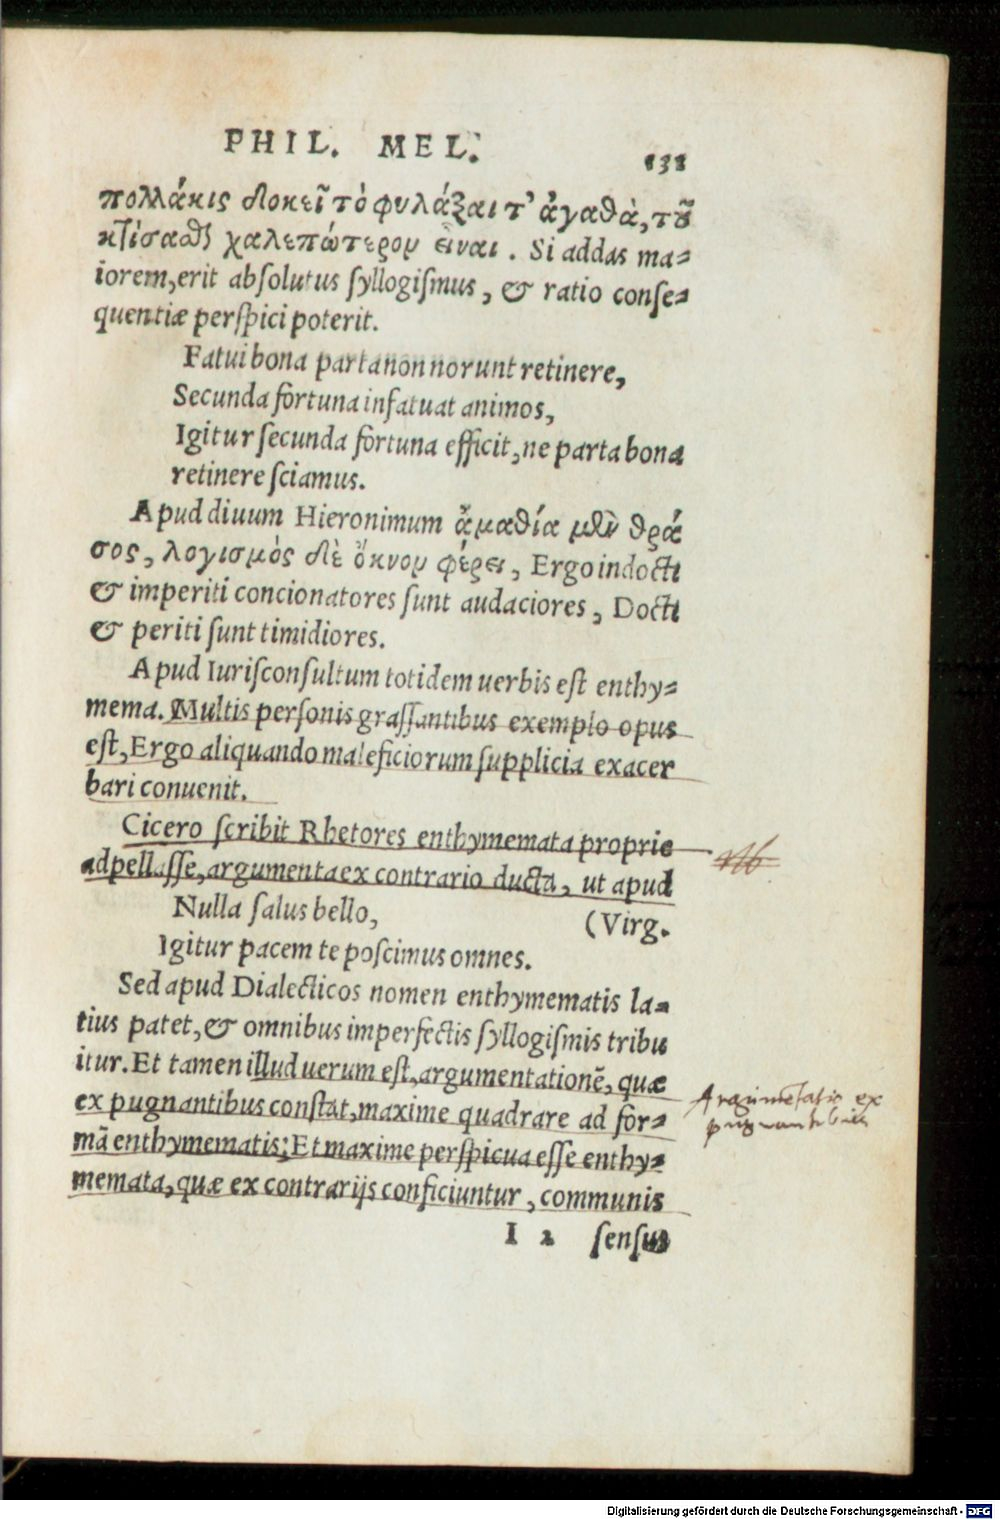 PHIL. MEL.
131
πολλάκις δοκεῖ τὸ φυλάξαι τ' ἀγαθὰ, τοῦ
κτίσασθ χαλεπώτερον εἶναι. Si addas ma=
iorem, erit absolutus syllogiſmus, & ratio conſe=
quentiæ perſpici poterit.
Fatui bona parta non norunt retinere,
Secunda fortuna infatuat animos,
Igitur ſecunda fortuna efficit, ne parta bona
retinere ſciamus.
Apud diuum Hieronimum ἀμαθία μὲν θρά
σος, λογισμὸς δὲ ὄκνον φέρει, Ergo indocti
& imperiti concionatores ſunt audaciores, Docti
& periti ſunt timidiores.
Apud Iuriſconſultum totidem uerbis eſt enthy=
mema. Multis perſonis graſſantibus exemplo opus
eſt, Ergo aliquando maleficiorum ſupplicia exacer
bari conuenit.
Cicero ſcribit Rhetores enthymemata proprie
adpellaſſe, argumenta ex contrario ducta, ut apud
Nulla ſalus bello, (Virg.
Igitur pacem te poſcimus omnes.
Sed apud Dialecticos nomen enthymematis la=
tius patet, & omnibus imperfectis ſyllogiſmis tribu
itur. Et tamen illud uerum eſt, argumentationē, quæ
ex pugnantibus conſtat, maxime quadrare ad for=
mā enthymematis: Et maxime perſpicua eſſe enthy=
memata, quæ ex contrarijs conficiuntur, communis
I 2 ſenſus
Nb
Argumētatio ex
pugnantibus
Digitalisierung gefördert durch die Deutsche Forschungsgemeinschaft - DFG